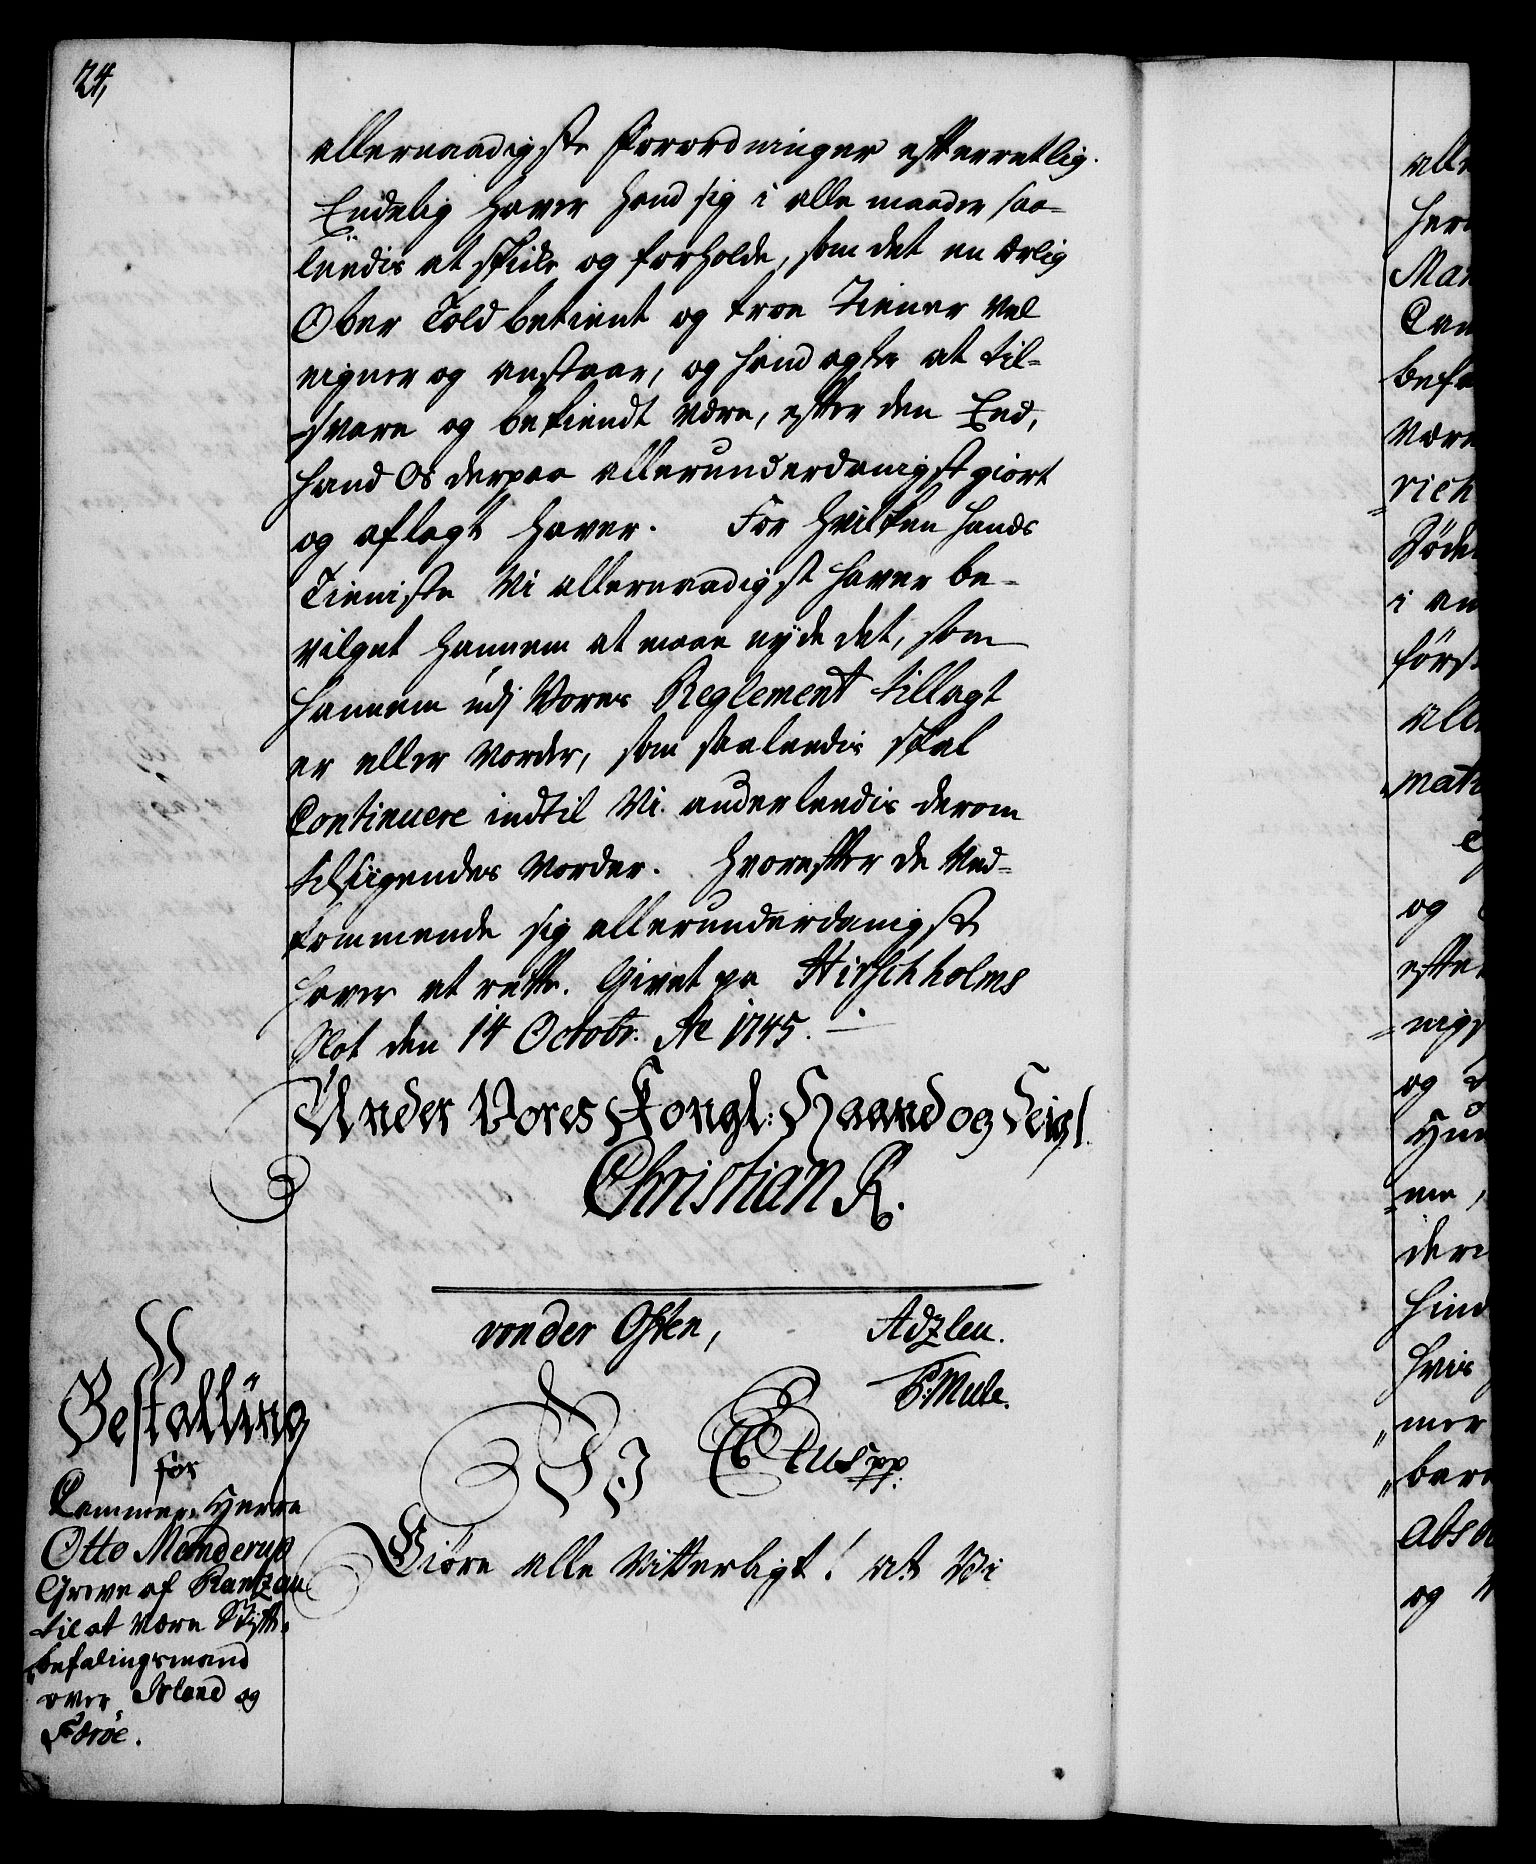 24,
allernaadigste Forordninger efterretlig.
Endelig haver hand sig i alle maader saa-
ledis at skicke og forholde, som det en ærlig
Ober Told betient og troe Tiener vel
eigner og anstaar, og hand agter at til-
svare og bekiendt være, efter den Eed,
hand Os derpaa allerunderdanigst giort
og aflagt haver. For hvilken hands
Tieniste Vi allernaadigst haver be-
vilget hannem at maae nÿde det, som
hannem udj Vores Reglement tillagt
er eller vorder, som saaledis skal
Continuere indtil Vi anderleedis derom
tilsigendes vorder. Hvorefter de Ved-
kommende sig allerunderdanigst
haver at rette. Givet paa Hirschholms
Slot den 14 Octobr. Ao 1745.
Under Vores Kongl: Haand og Seigl.
Christian R.
von der Osten, Adzlew.
P: Mule.
Bestallüng
for
Cammer-Herre
Otto Manderup
Greve af Rantzau
til at være Stift-
befalingsmand
over Island og
Færöe.
Vi C 6tus pp.
Giöre alle vitterligt! at Vi
alle
Man
befa
være
rich
i an
först
alle
mati
og
efter
og
=me,
hvis
„mer
„bare
og